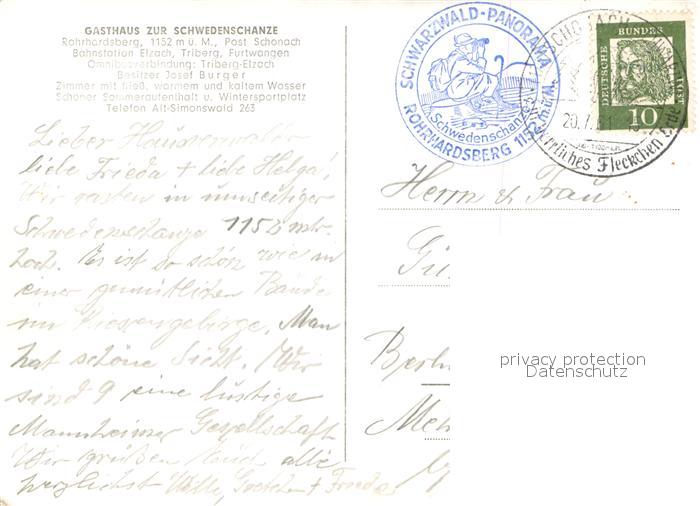 GASTHAUS ZUR SCHWEDENSCHANZE
Rohrhardsberg, 1152 m ü. M., Post Schonach
Bahnstation Elzach, Triberg, Furtwangen
Omnibusverbindung: Triberg-Elzach
Besitzer Josef Burger
Zimmer mit fließ. warmem und kaltem Wasser
Schöner Sommeraufenthalt u. Wintersportplatz
Telefon Alt-Simonswald 263
Lieber
liebe Frieda + liebe Helga,
Wir rasten in umseitiger
Schwedenschanze 1152 mtr.
hoch. Es ist so schön wie in
einer gemütlichen Baude
im Riesengebirge. Man
hat schöne Sicht. Wir
sind 9 eine lustige
Mannheimer Gesellschaft
Wir grüßen Euch alle
herzlichst Willi, Gretchen + Frieda
SCHWARZWALD-PANORAMA
Schwedenschanze
ROHRHARDSBERG 1152 m.ü.M.
SCHONACH
20.7.61
herrliches Fleckchen Erde
DEUTSCHE BUNDESPOST
10
Herrn u. Frau
Berlin
privacy protection
Datenschutz